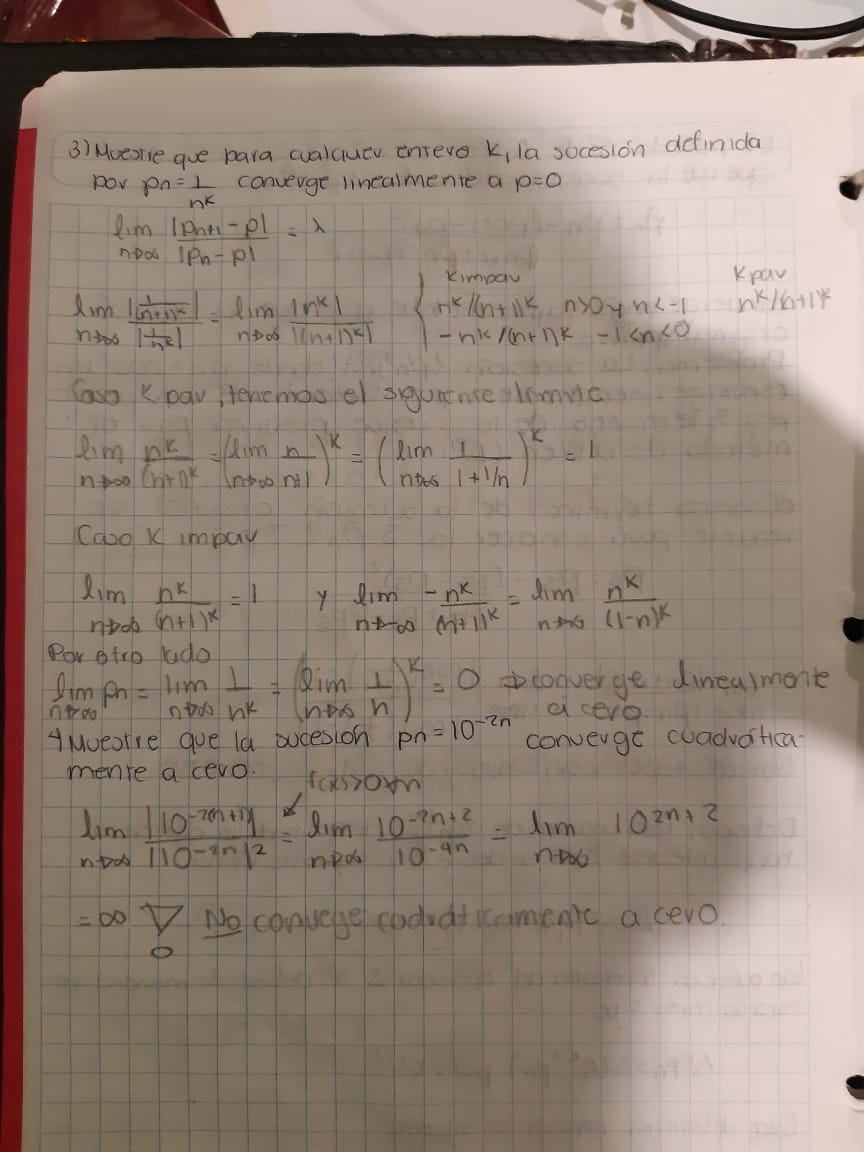 3) Muestre que para cualquier entero K, la sucesión definida
por pn = 1/n^K converge linealmente a p=0
lim n→∞ |pn+1 - p| / |pn - p| = λ
lim n→∞ |1/(n+1)^K| / |1/n^K| = lim n→∞ |n^K| / |(n+1)^K| { K impar n^K/(n+1)^K n>0 y n<-1 -n^K/(n+1)^K -1<n<0 K par n^K/(n+1)^K
Caso K par, tenemos el siguiente límite
lim n→∞ n^K/(n+1)^K = (lim n→∞ n/n+1)^K = (lim n→∞ 1/1+1/n)^K = 1
Caso K impar
lim n→∞ n^K/(n+1)^K = 1 y lim n→-∞ -n^K/(n+1)^K = lim n→∞ n^K/(1-n)^K
Por otro lado
lim n→∞ pn = lim n→∞ 1/n^K = (lim n→∞ 1/n)^K = 0 ⇒ converge linealmente
a cero.
4 Muestre que la sucesión pn = 10^-2n converge cuadrática-
mente a cero.
f(x)>0 ∀n
lim n→∞ |10^-2(n+1)| / |10^-2n|^2 = lim n→∞ 10^-2n+2 / 10^-4n = lim n→∞ 10^2n+2
= ∞ ∇ No convege cadráticamente a cero.